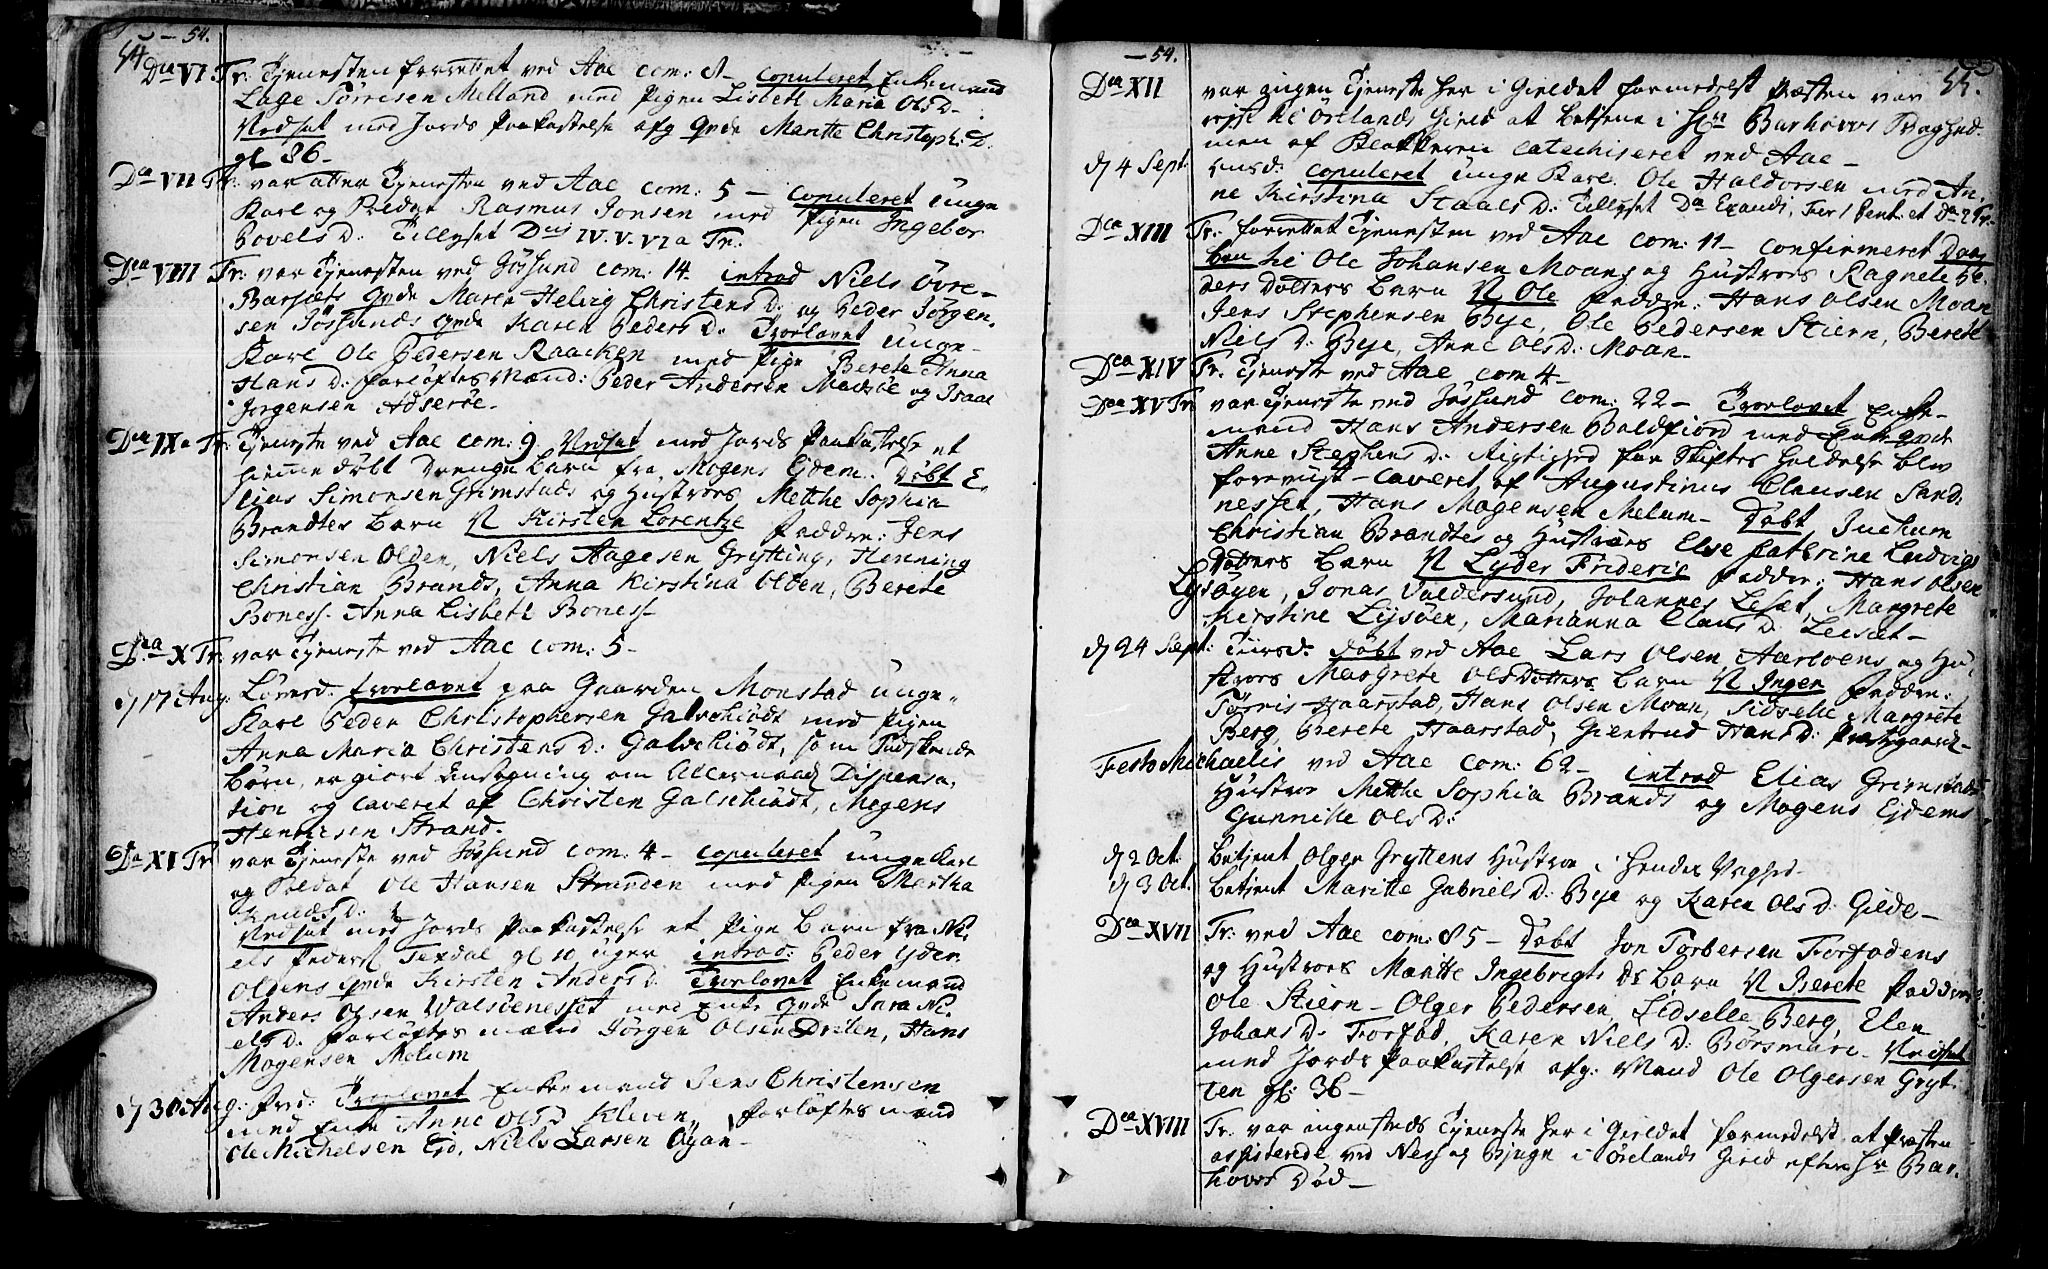 54 — 54.
Dca VI. Tr: Tjenesten forrettet ved Aae com: 8 – copuleret Enkemand
Lage Torrisen Melland med Pigen Lisbeth Maria Ols D.
Nedsat med Jords Paakastelse afg Qvde Maritte Christoph: D.
gl 86 –
Dca VII Tr: var atter Tjenesten ved Aae com: 5 – copuleret Unge
Karl og Soldat Rasmus Jonsen med Pigen Ingebor
Povels D: Tillyset Dnij IV. V. VI a Tr.
Dca VIII Tr: var Tjenesten ved Jøssund com: 14. introd Niels Øvre-
Barsæts Qvde Maren Helvig Christens D: og Peder Jørgen.
sen Jøssunds Qvde Karen Peders D: Trorlovet unge-
Karl Ole Pedersen Raacken med Pige Berete Anna
Hans D: forløftes Mænd: Peder Andersen Madsøe og Isaac
Jørgensen Adserøe.
Dca IX a Tr: Tjeneste ved Aae com: 9 Nedsat med Jords Paakastelse et
hiemmedøbt Drenge Barn fra Mogens Ejdem. Døbt E.
lias Simonsen Grimstads og Hustroes Mette Sophia
Brandtes Barn N Kirsten Lorentze Faddre: Jens
Simonsen Olden, Niels Aagesen Grytting, Henning
Christian Brands, Anna Kirstina Olden, Berete
Boness. Anna Lisbeth Boness-
Dca X Tr: var Tjeneste ved Aae com: 5 –
d 17 Aug: Løverd: trorlovet paa Gaarden Monstad unge-
Karl Peder Christophersen Galschiødt med Pigen
Anna Maria Christens D: Galschiødt, som Sødskende
Børn, er giort Ansøgning om Allernaad Dispensa,
tion og caveret af Christen Galschiødt, Mogens
Henricsen Strand.
Dca XI Tr var Tjeneste ved Jøssund com: 4 – copuleret unge Karl
og Soldat Ole Hansen Stranden med Pigen Martha
Knuds D:
Nedsat med Jords Paakastelse et Pige Barn fra Ni.
els Peders Texdal gl 10 uger introd: Peder
Oldens Qvde Kirsten Anders D. Trorlovet Enkemand
Anders Olsen Walsøenesset med Enke Qvde Sara Ni.
els D. Forløftes mænd Jørgen Olsen Dreten, Hans
Mogensen Melum
d 30 Aug: Fred: Trorlovet Enkemand Jens Christensen
med Enke Anne Ols D Kleven, forløftes mænd
Ole Michelsen Ejd, Niels Larsen Oyan –
— 54. 55.
Dca XII var ingen Tjeneste her i Gieldet formedelst Præsten var
rejst til Ørelands Gield at betjene i Hr Barhovs Svaghed
men af Klokkeren catechiseret ved Aae –
d 4 Sept: Onsd: copuleret Unge Karl Ole Haldorsen med An,
ne Kirstina Staals D: Tillyset Dca Exaudi, Fer 1 Pent: et Dca 2 Tr.
Dca XIII Tr: forrettet Tjenesten ved Aae com: 11 – confirmeret Daa
ben til Ole Johansen Moans og Hustroes Ragnele Pe.
ders Dotters Barn N Ole Faddre: Hans Olsen Moan
Jens Stephensen Bye, Ole Pedersen Stiern, Berete
Niels D: Bye, Anne Ols D: Moan –
Dca XIV Tr. Tjeneste ved Aae com 4 –
Dca XV Tr var Tjeneste ved Jøssund com: 22 – Trorlovet Enke-
mand Hans Andersen Boldfiord med Enke Qvde
Anne Stephens D: Rigtighed for Skiftes Holdelse blev
forevist – caveret af Augustinus Clausen Sand,
nesset, Hans Mogensen Melum – Døbt Jochum
Christian Brandtes og Hustroes Else Catrine Ludvigs
Dotters Barn N Lyder Frideric Faddre: Hans Olsen
Lysøyen, Jonas Valdersund, Johannes Lesæt, Margrete
Kirstine Lysøen, Marianna Claus D: Leesæt –
d 24 Sept: Tiirsd: Døbt ved Aae Lars Olsen Aarloens og Hu,
stroes Margrete Ols Dotters Barn N Ingen Faddre:
Torris Haarstad, Hans Olsen Moan, Sidselle Margrete
Berg, Berete Haarstad, Giertrud Hans D: Præstegaard –
Festo Michaelis ved Aae com: 62 – introd Elias Grimstads
Hustroe Mette Sophia Brands og Mogens Ejdems
Gunnille Ols D:
d 2 Oct: betjent Olger Gryttens Hustroe i hendes Svaghed.
d 3 Oct. betjent Maritte Gabriels D: Bye og Karen Ols D: Gilde –
Dca XVII Tr: ved Aae com: 85 – Døbt Jon Torbersen Forfodens
og Hustroes Maritte Ingebrigts Ds Barn N Berete Faddre:
Ole Stiern – Olger Pedersen, Sidselle Berg, Elen
Johans D. Forfod, Karen Niels D: Børsmare – Nedsat
med Jords Paakastelse afg: Mand Ole Olgersen Gryt.
ten gl: 36 –
Dca XVIII Tr: var ingensteds Tjeneste her i Gieldet formedelst at Præsten
assisterede ved Ness og Bjugn i Ørelands Gield efter Hr Bar.
hovs Død –